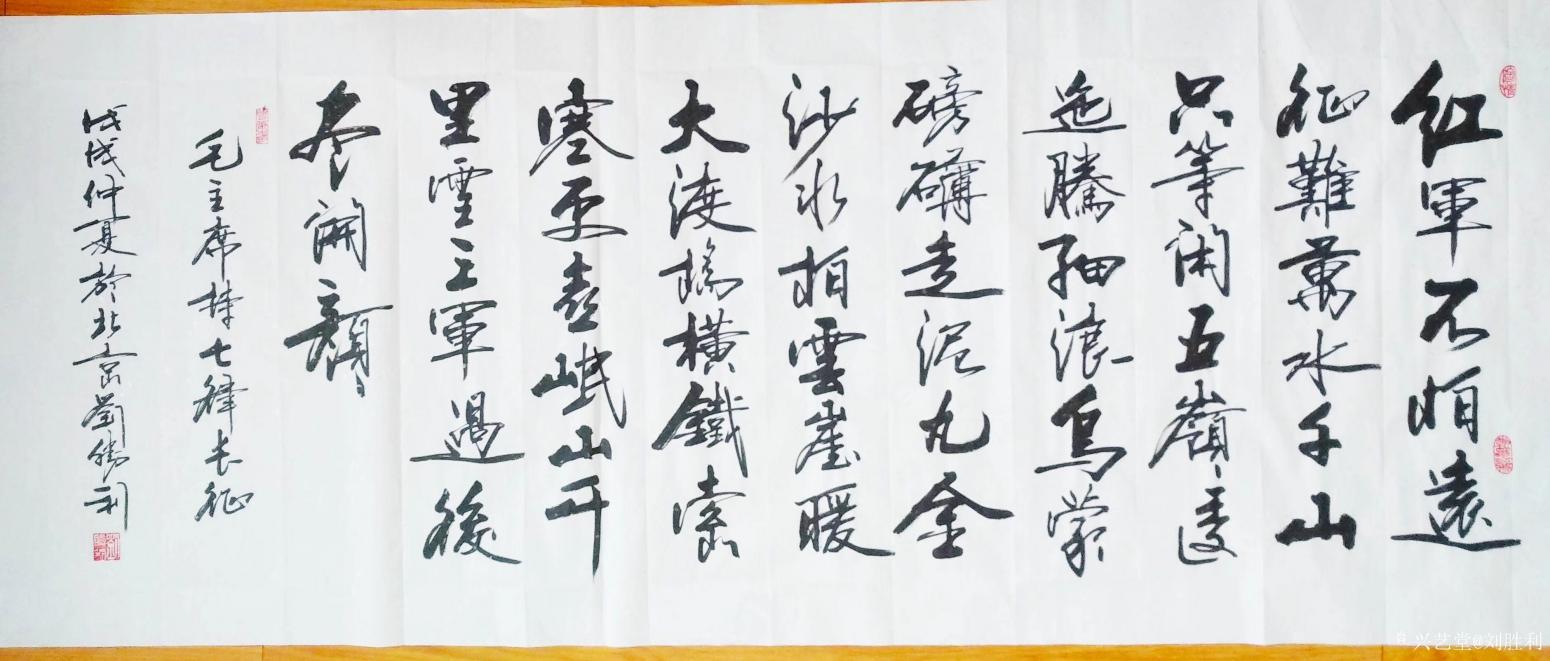 红軍不怕遠
征難萬水千山
只等闲五嶺逶
迤騰細浪烏蒙
磅礴走泥丸金
沙水拍雲崖暖
大渡橋橫鐵索
寒更喜岷山千
里雪三軍過後
尽開顏
毛主席詩七律长征
戊戌仲夏於北京劉勝利
兴艺堂@刘胜利